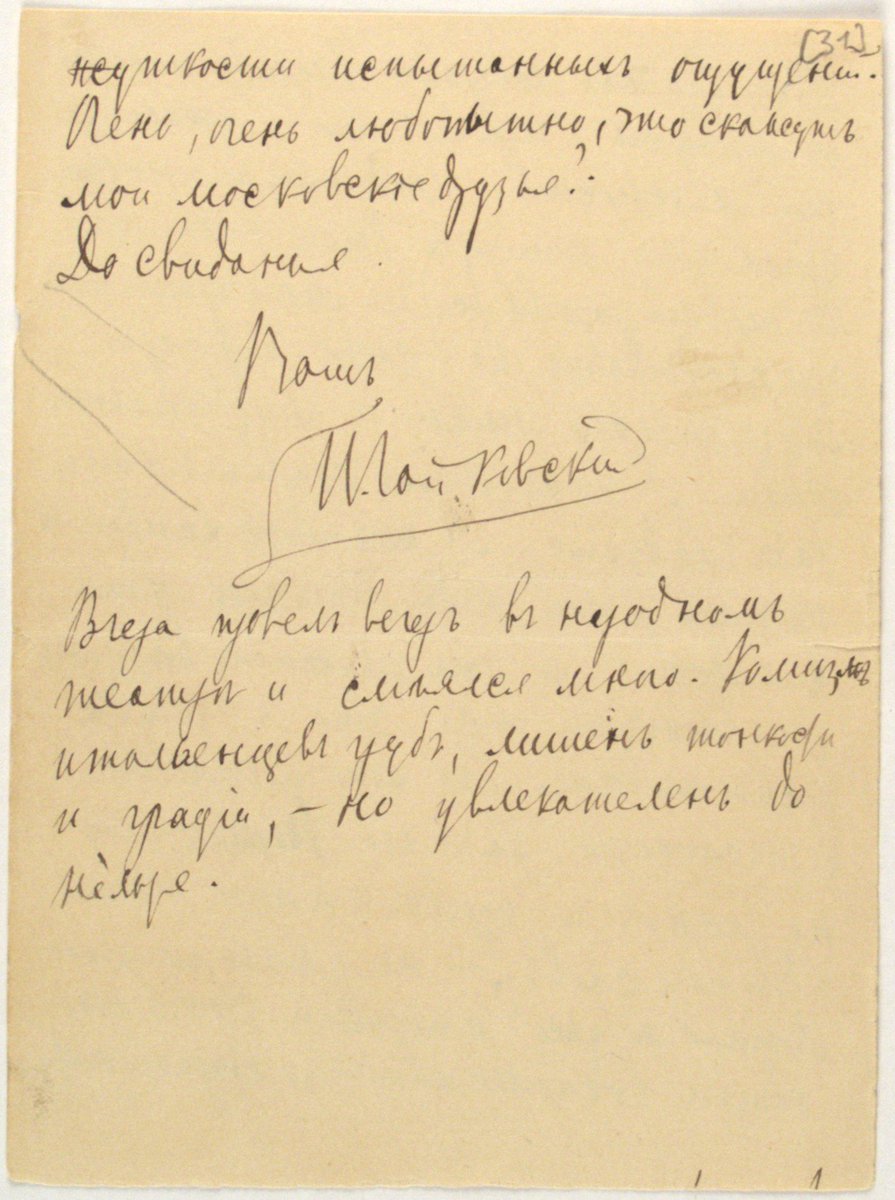 [31]
жуткости испытанныхъ ощущеній.
Очень, очень любопытно, что скажутъ
мои московскіе друзья?
До свиданія.
Вашъ
П. Чайковскій
Вчера провелъ вечеръ въ народномъ
театрѣ и смѣялся много. Комизмъ
итальенцевъ грубъ, лишенъ тонкости
и граціи, – но увлекателенъ до
нельзя.